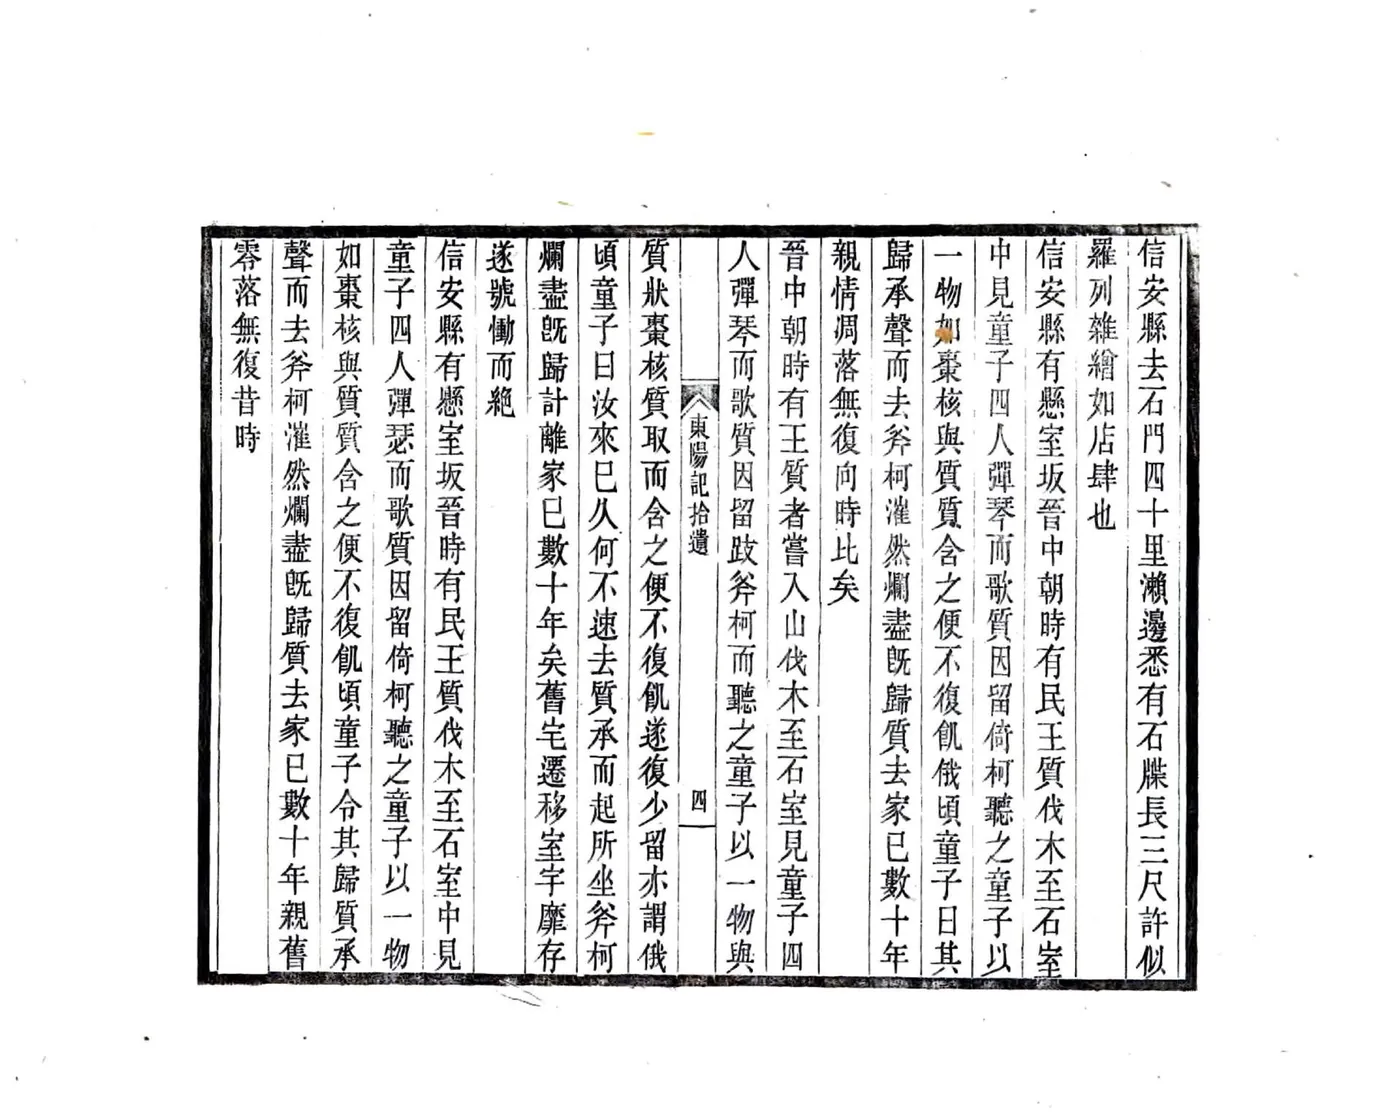 信安縣去石門四十里瀨邊悉有石牒長三尺許似
羅列雜繪如店肆也
信安縣有懸室坂晉中朝時有民王質伐木至石室
中見童子四人彈琴而歌質因留倚柯聽之童子以
一物如棗核與質質含之便不復飢俄頃童子曰其
歸承聲而去斧柯漼然爛盡旣歸質去家已數十年
親情凋落無復向時比矣
晉中朝時有王質者嘗入山伐木至石室見童子四
人彈琴而歌質因留歧斧柯而聽之童子以一物與
東陽記拾遺
四
質狀棗核質取而含之便不復飢遂復少留亦謂俄
頃童子曰汝來已久何不速去質承而起所坐斧柯
爛盡旣歸計離家已數十年矣舊宅遷移室宇靡存
遂號慟而絕
信安縣有懸室坂晉時有民王質伐木至石室中見
童子四人彈瑟而歌質因留倚柯聽之童子以一物
如棗核與質質含之便不復飢頃童子令其歸質承
聲而去斧柯漼然爛盡旣歸質去家已數十年親舊
零落無復昔時